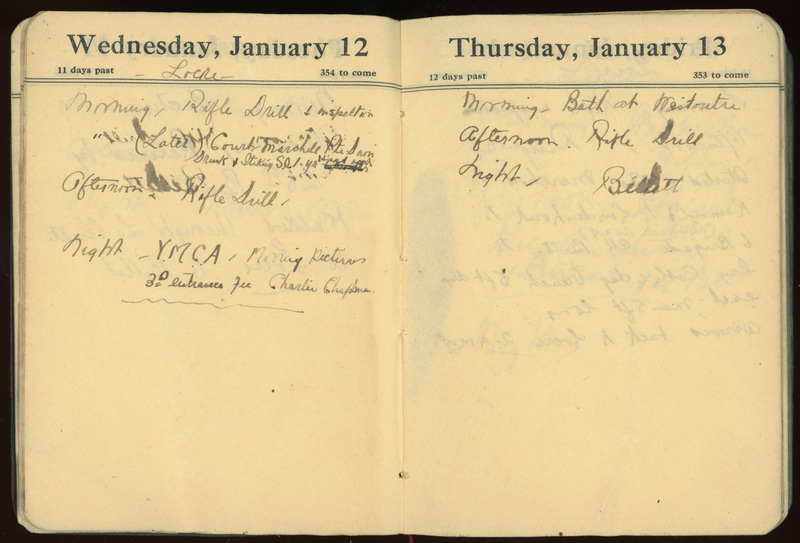 Wednesday, January 12
11 days past
- Locre -
354 to come
Morning, Rifle Drill & inspection
" " (Later) Court Marshall Pte Davis
Drunk & Striking Sgt. yrs
Afternoon - Rifle Drill,
Night - YMCA, Moving Pictures
3D entrance Fee Charlie Chapman
Thursday, January 13
12 days past
353 to come
Morning - Bath at Westoutre
Afternoon. Rifle Drill
Night, Billett